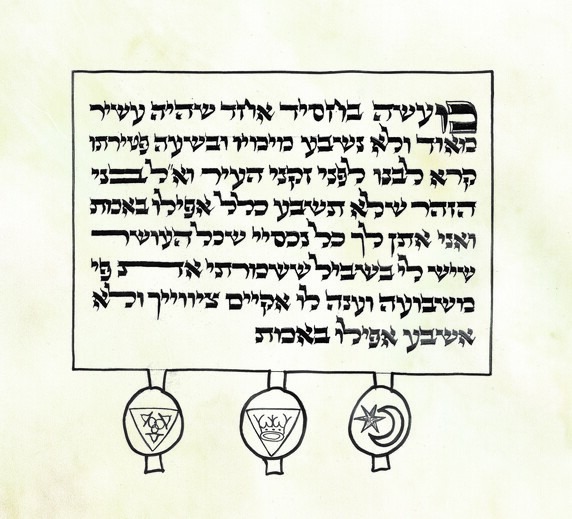 מעשה בחסיד אחד שהיה עשיר
מאוד ולא נשבע מימיו ובשעה פטירתו
קרא לבנו לפני זקני העיר וא״ל בני
הזהר שלא תשבע כלל אפילו באמת
ואני אתן לך כל נכסיי שכל העושר
שיש לי בשביל ששמורתי את פי
משבועה וענה לו אקיים ציווייך ולא
אשבע אפילו באמת